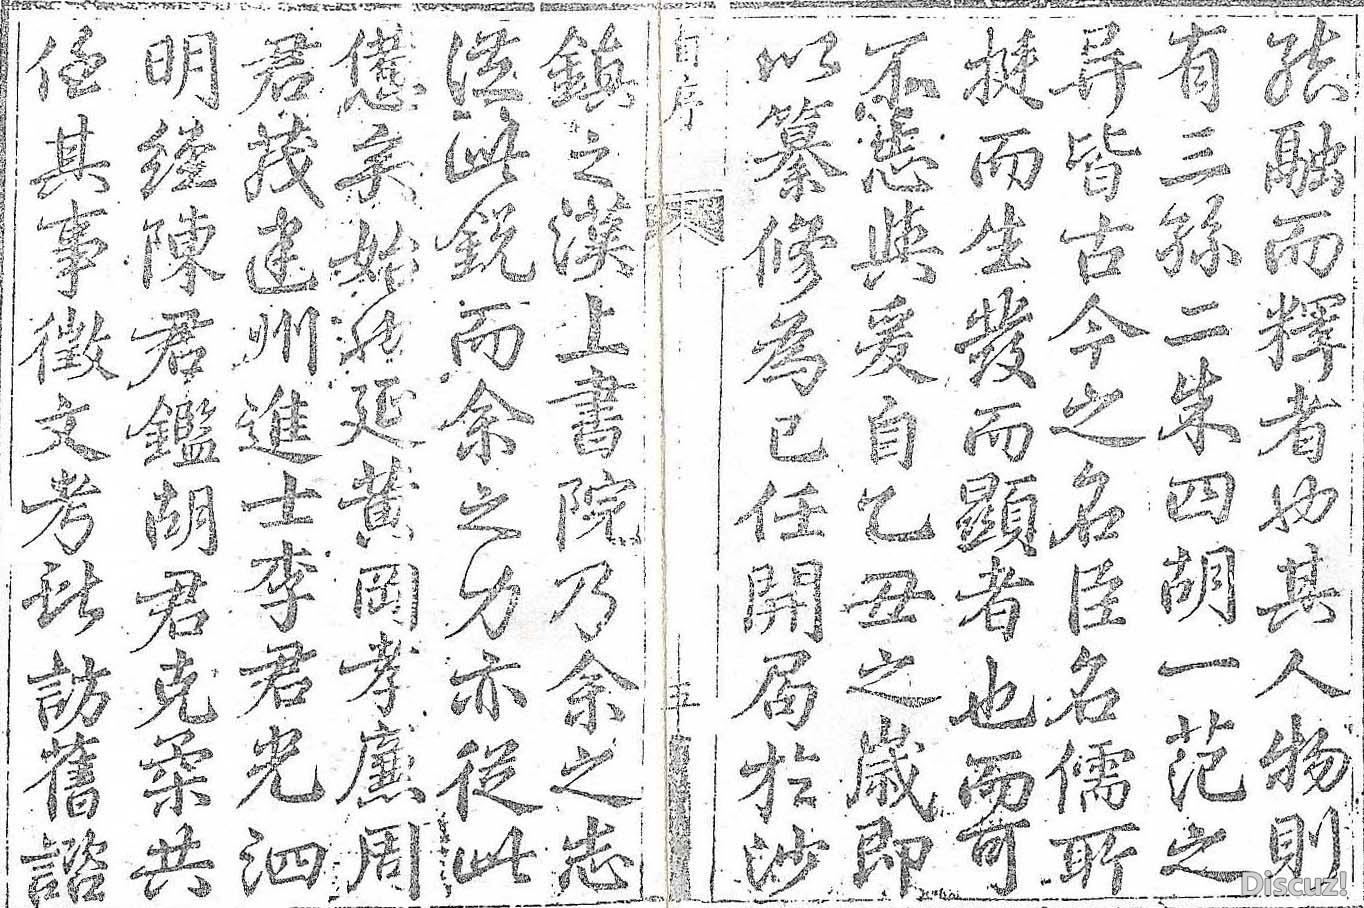 能融而釋者也其人物則
有三孫二朱四胡一范之
异皆古今之名臣名儒所
挺而生發而顯者也而可
不與爰自乙丑之歲即
以纂修為已任開局於沙
自序
五
鎮之漢上書院乃余之志
從此銳而余之力亦從此
憊矣始能延黃岡孝廉周
君茂建州進士李君光泗
明經陳君鑑胡君克柔共
任其事徵文考訪舊諮
Discuz!